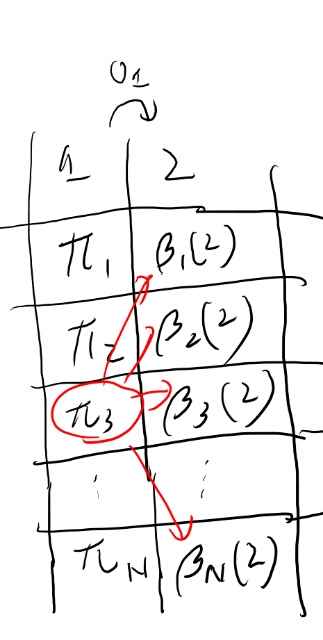 o₁
1 2
π₁ β₁(2)
π₂ β₂(2)
π₃ β₃(2)
⋮ ⋮
π_N β_N(2)